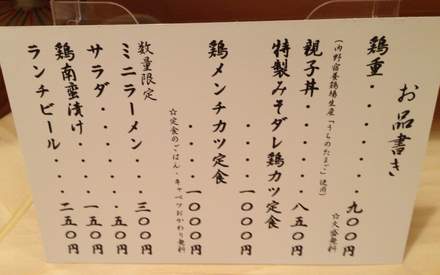 お品書き
鶏重・・・・・・・九〇〇円
☆大盛無料
(内野宿養鶏場生産『うちのたまご』使用)
親子丼・・・・・・八五〇円
特製みそダレ鶏カツ定食
・・・・一〇〇〇円
鶏メンチカツ定食
・・・・一〇〇〇円
☆定食のごはん・キャベツおかわり無料
数量限定
ミニラーメン・・・・三〇〇円
サラダ・・・・・・・五〇円
鶏南蛮漬け・・・・一五〇円
ランチビール・・・二五〇円